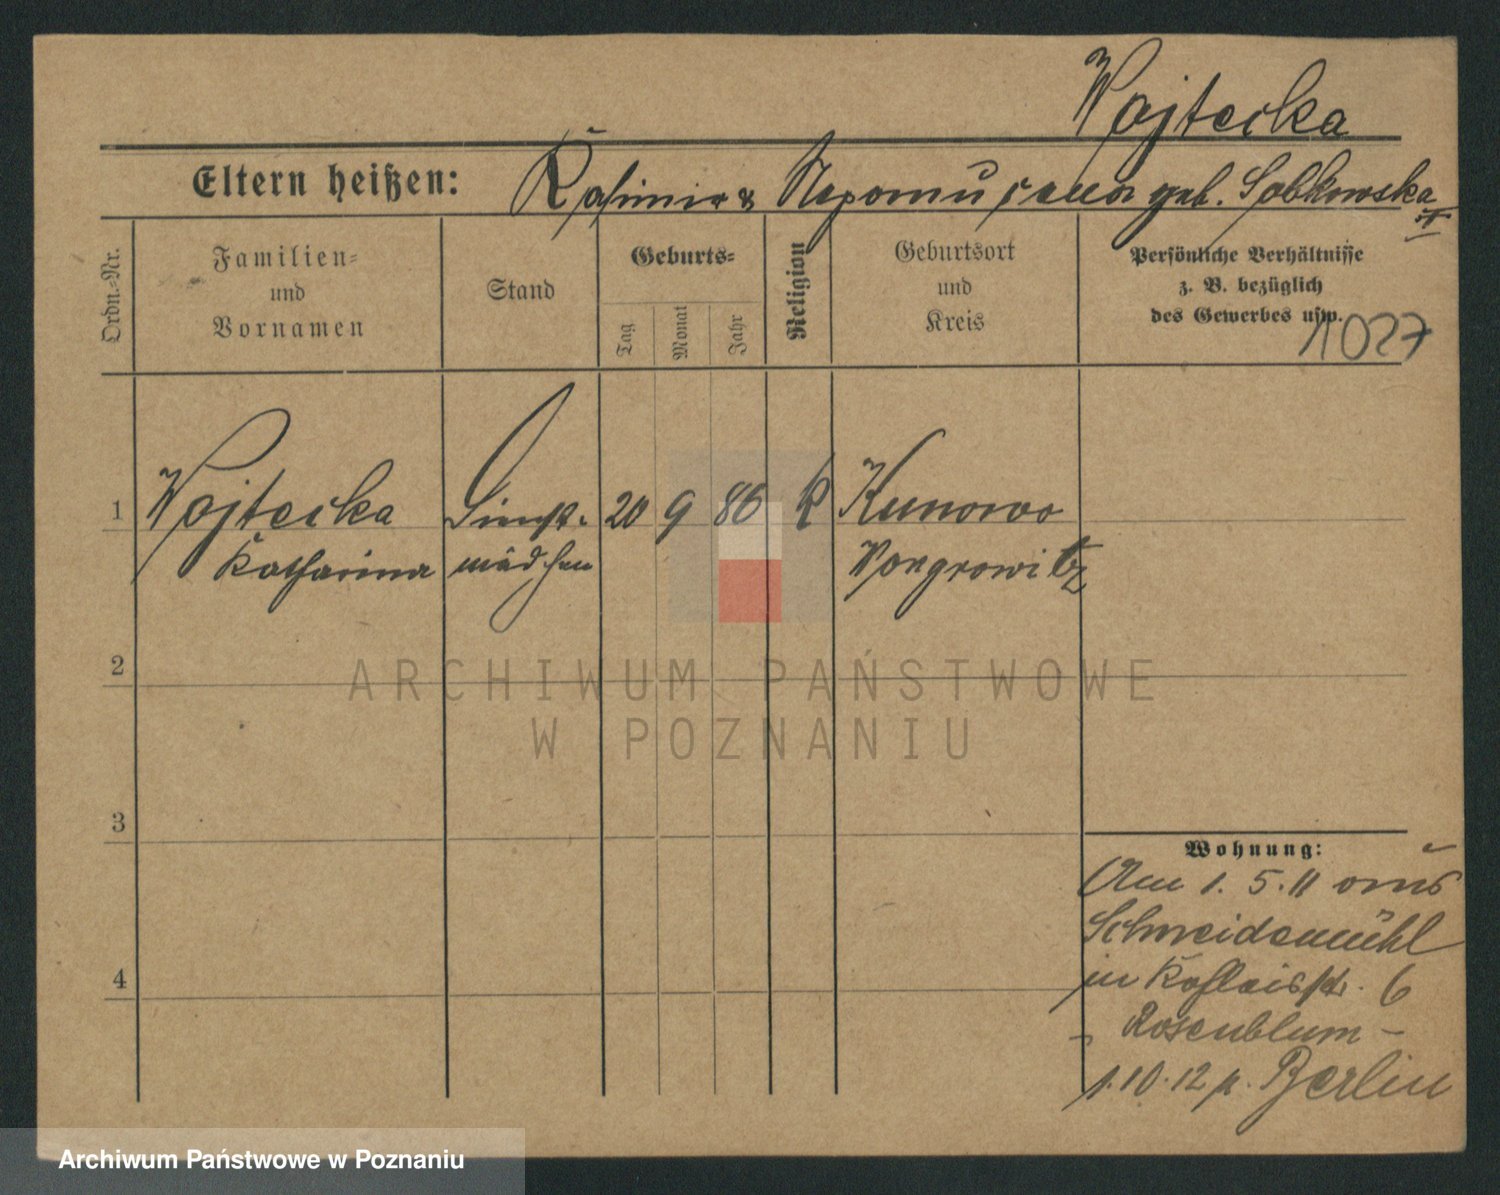 Wojtecka
Eltern heißen: Kasimir & Nepomucena geb. Sobkowska
Ordn.-Nr.
Familien-
und
Vornamen
Stand
Geburts-
Tag
Monat
Jahr
Religion
Geburtsort
und
Kreis
Persönliche Verhältnisse
z. B. bezüglich
des Gewerbes usw.
1027
1 Wojtecka Dienst- 20 9 86 k Kunowo
Katharina mädchen Wongrowitz
2
3
4
Wohnung:
Am 1. 5. 11 aus
Schneidemühl
in 6
Rosenblum -
1.10.12 n. Berlin
ARCHIWUM PAŃSTWOWE
W POZNANIU
Archiwum Państwowe w Poznaniu